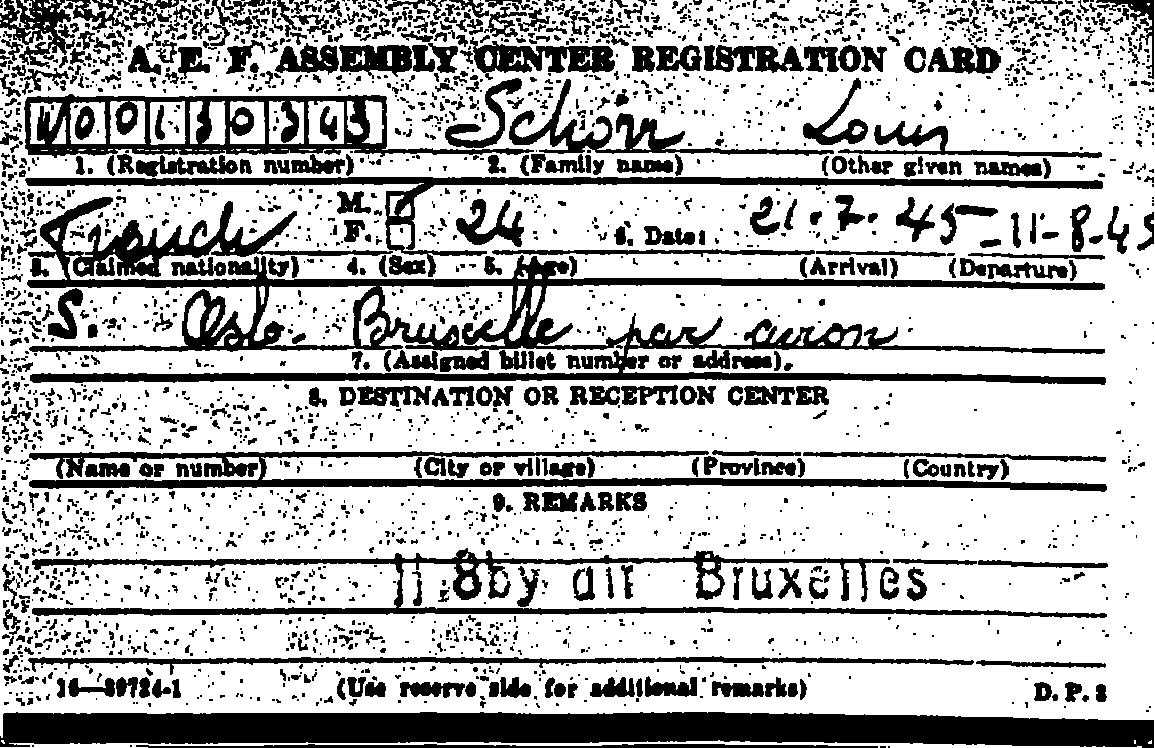 A. E. F. ASSEMBLY CENTER REGISTRATION CARD
W00130343 Schorr Louis
1. (Registration number) 2. (Family name) (Other given names)
French M. F. 24 6. Date: 21-7-45 - 11-8-45
3. (Claimed nationality) 4. (Sex) 5. (Age) (Arrival) (Departure)
S. Oslo- Bruxelle par avion
7. (Assigned billet number or address).
8. DESTINATION OR RECEPTION CENTER
(Name or number) (City or village) (Province) (Country)
9. REMARKS
11.8by air Bruxelles
16—39724-1 (Use reserve side for additional remarks) D. P. 2